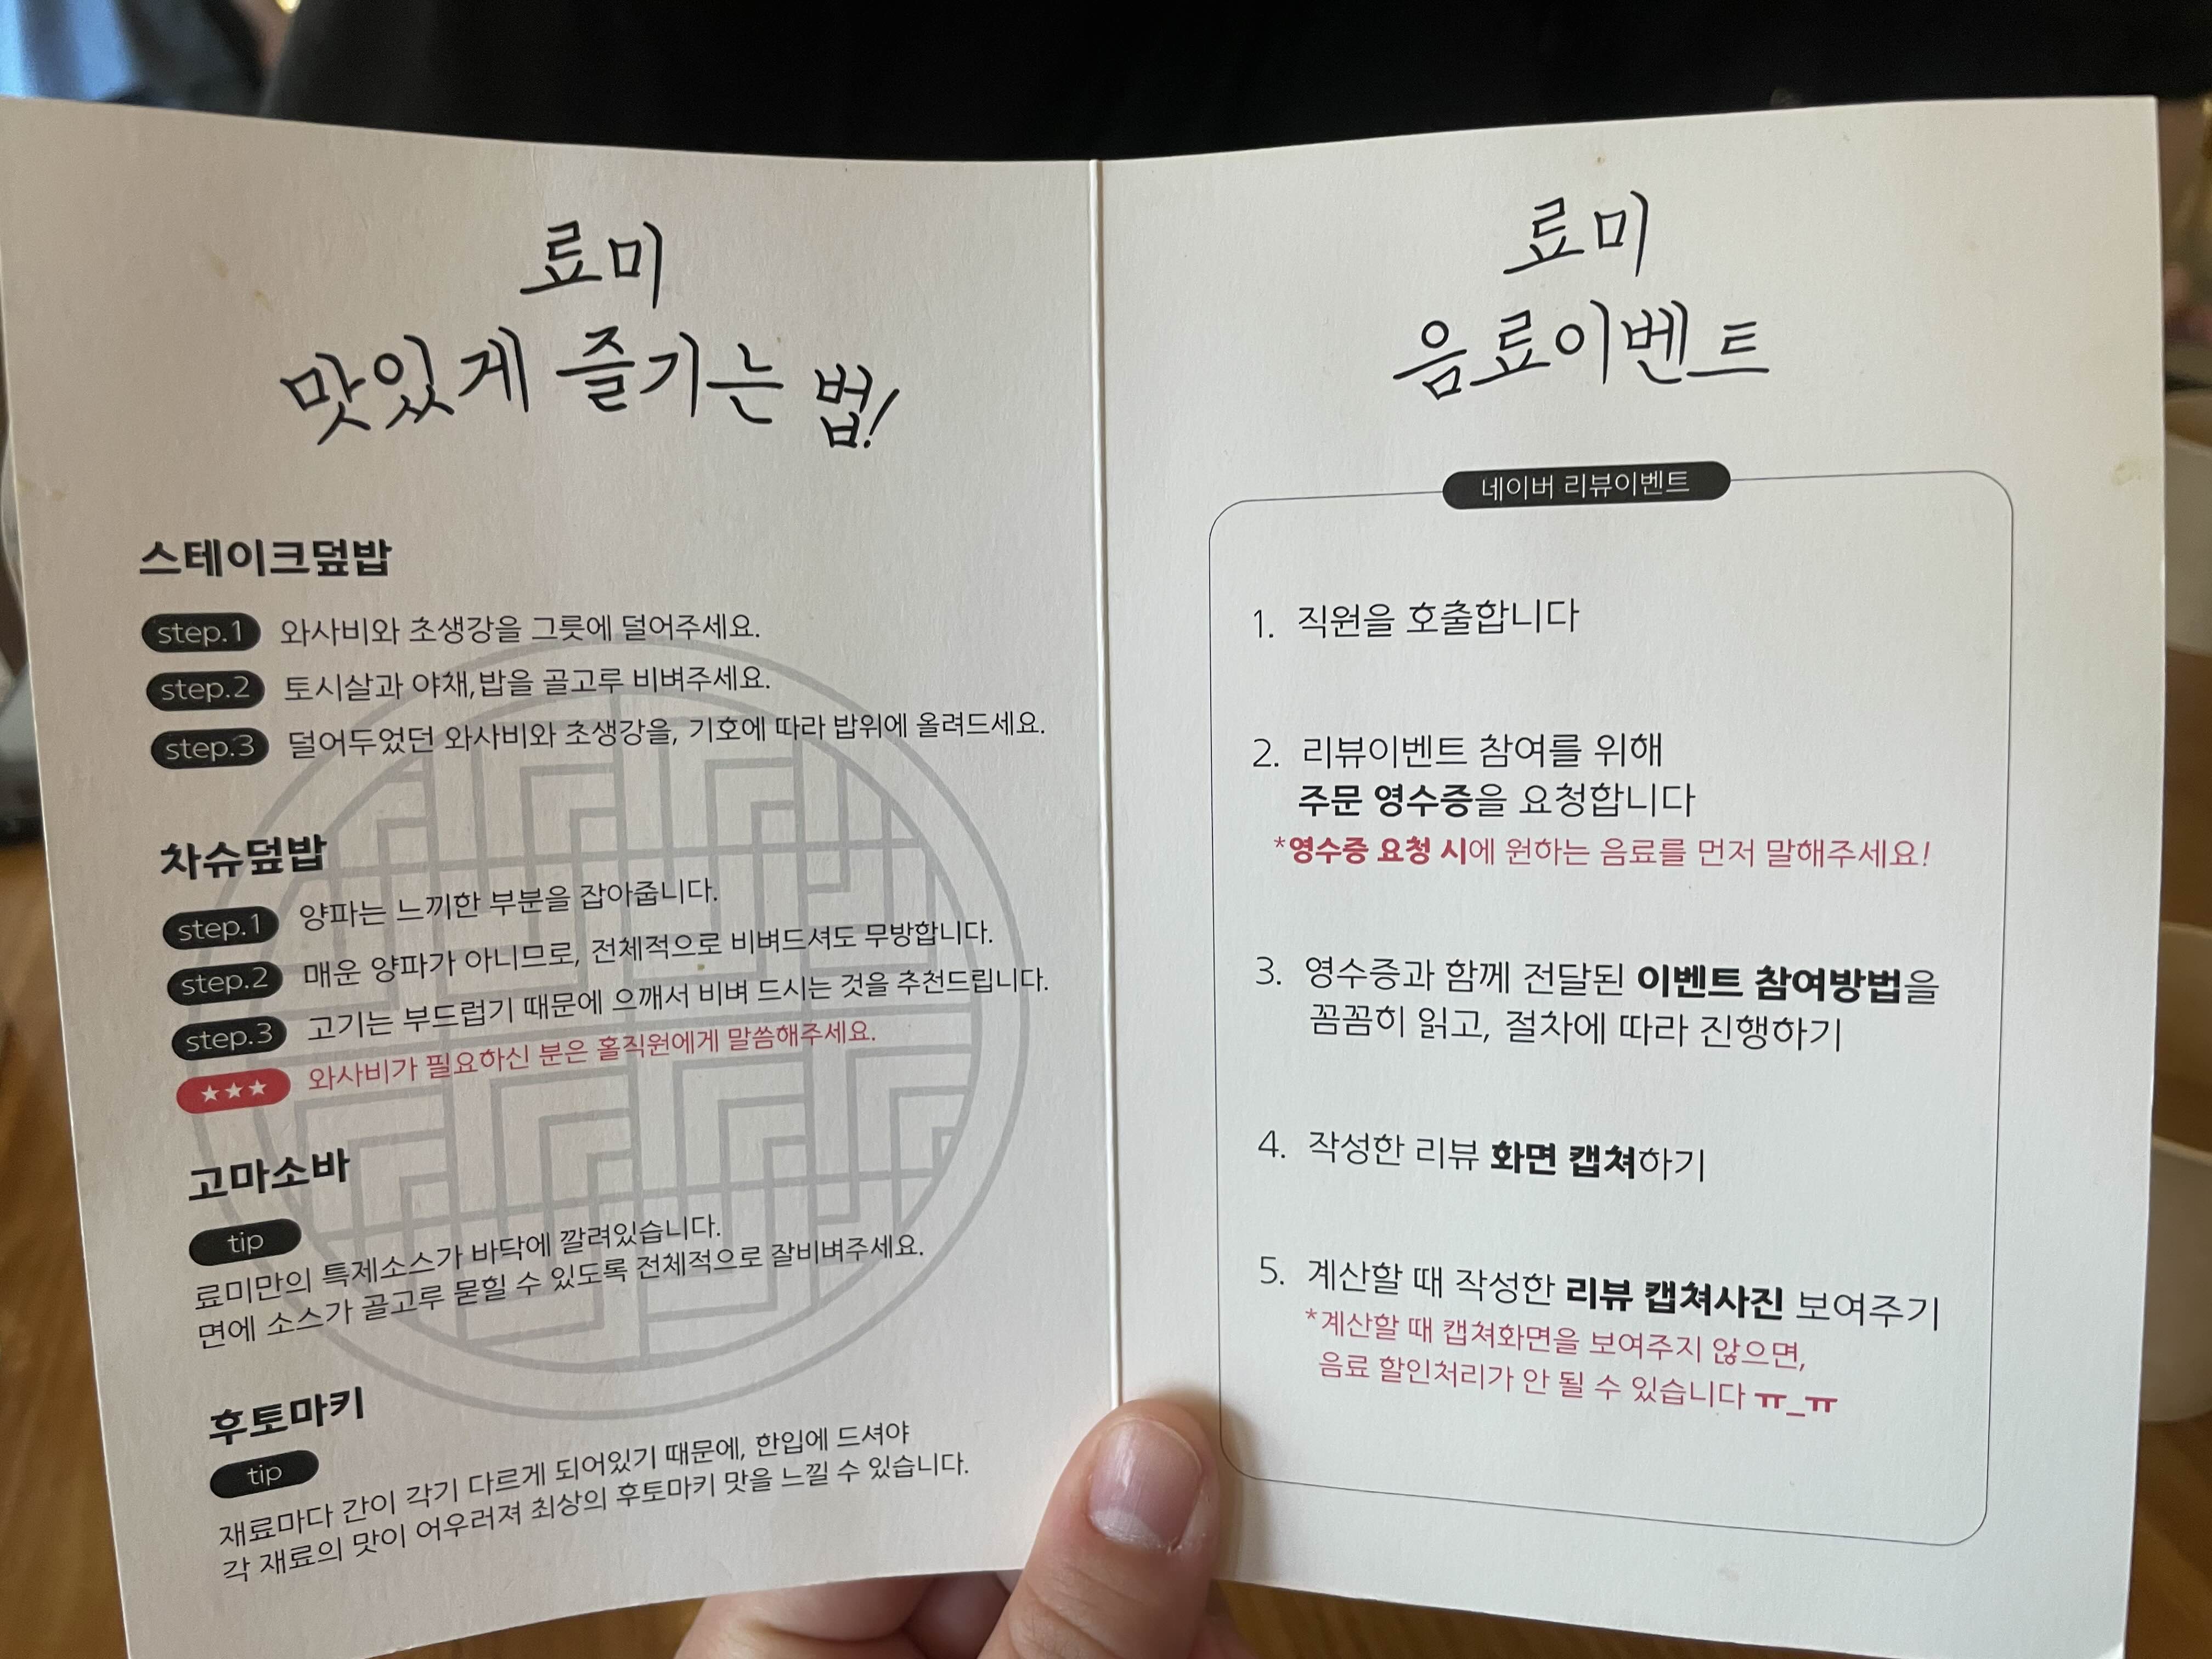 료미
맛있게 즐기는 법!
스테이크덮밥
step.1 와사비와 초생강을 그릇에 덜어주세요.
step.2 토시살과 야채,밥을 골고루 비벼주세요.
step.3 덜어두었던 와사비와 초생강을, 기호에 따라 밥위에 올려드세요.
차슈덮밥
step.1 양파는 느끼한 부분을 잡아줍니다.
step.2 매운 양파가 아니므로, 전체적으로 비벼드셔도 무방합니다.
step.3 고기는 부드럽기 때문에 으깨서 비벼 드시는 것을 추천드립니다.
★★★ 와사비가 필요하신 분은 홀직원에게 말씀해주세요.
고마소바
tip
료미만의 특제소스가 바닥에 깔려있습니다.
면에 소스가 골고루 묻힐 수 있도록 전체적으로 잘비벼주세요.
후토마키
tip
재료마다 간이 각기 다르게 되어있기 때문에, 한입에 드셔야
각 재료의 맛이 어우러져 최상의 후토마키 맛을 느낄 수 있습니다.
료미
음료이벤트
네이버 리뷰이벤트
1. 직원을 호출합니다
2. 리뷰이벤트 참여를 위해
주문 영수증을 요청합니다
*영수증 요청 시에 원하는 음료를 먼저 말해주세요!
3. 영수증과 함께 전달된 이벤트 참여방법을
꼼꼼히 읽고, 절차에 따라 진행하기
4. 작성한 리뷰 화면 캡쳐하기
5. 계산할 때 작성한 리뷰 캡쳐사진 보여주기
*계산할 때 캡쳐화면을 보여주지 않으면,
음료 할인처리가 안 될 수 있습니다 ㅠ_ㅠ